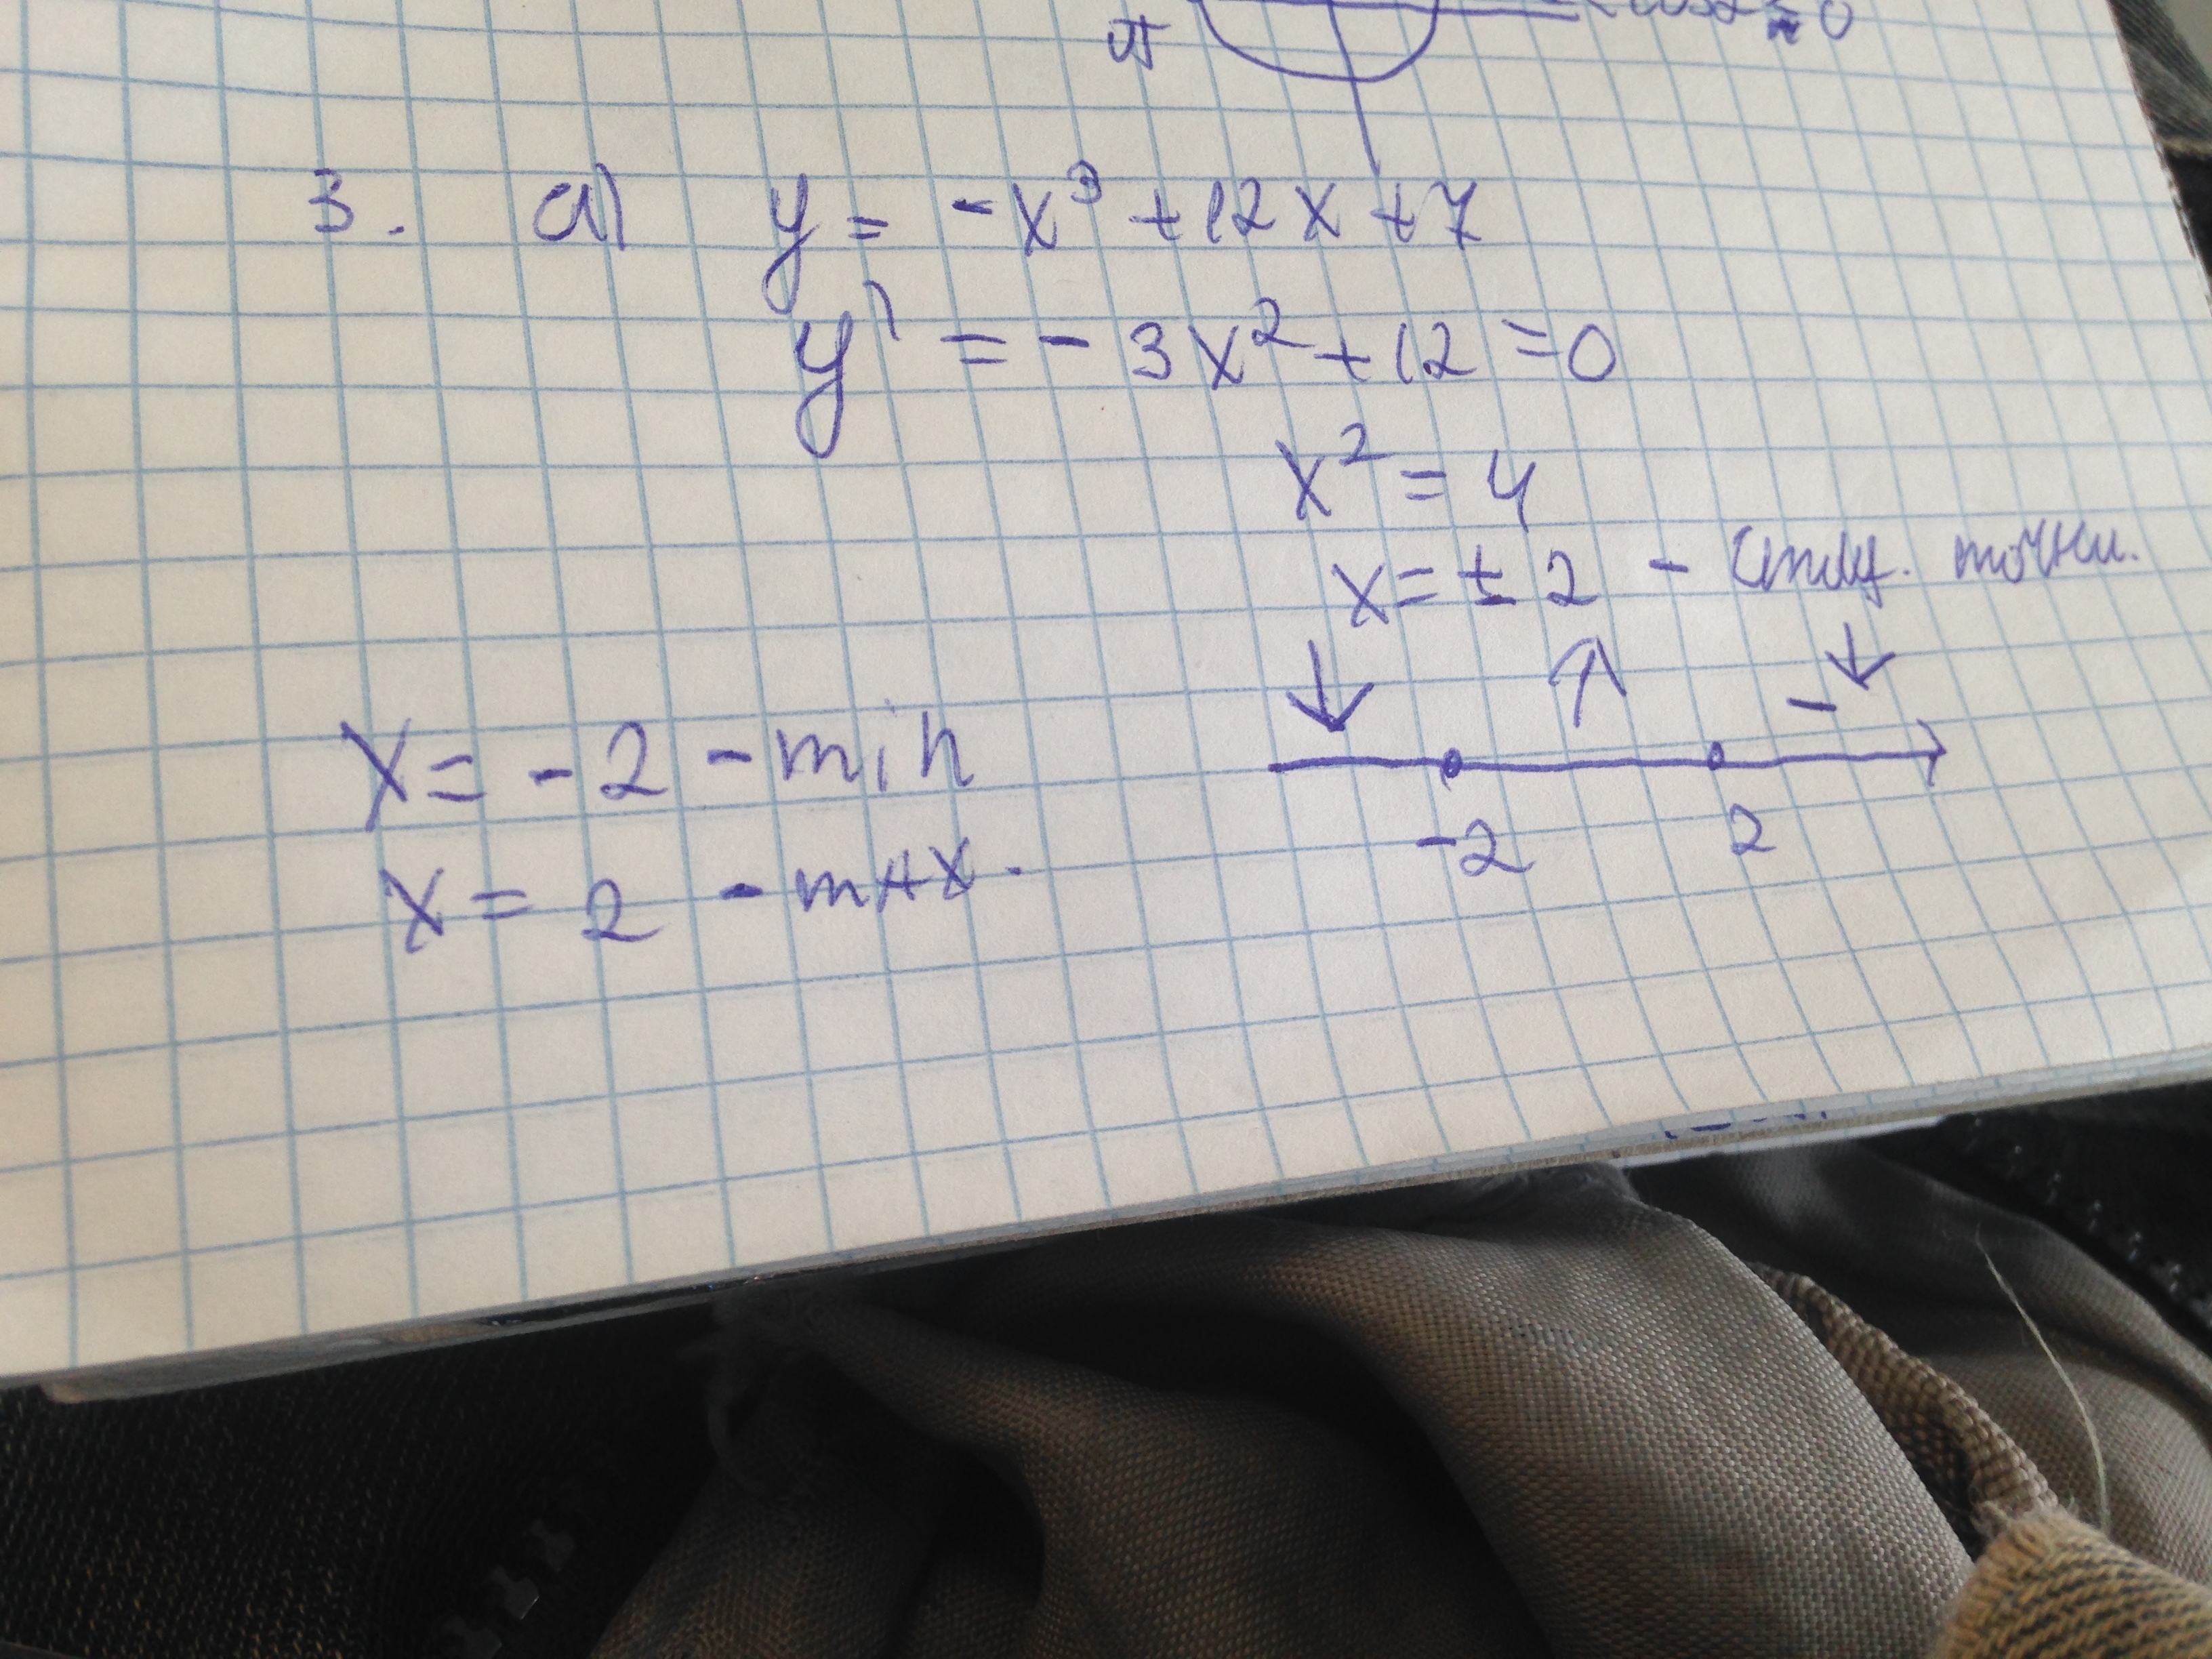 π
cosα ≤ 0
3. а) y = -x³ + 12x + 7
y' = -3x² + 12 = 0
x² = 4
x = ± 2 - стац. точки.
↓ ↑ - ↓
x = -2 - min
-2 2
x = 2 - max.